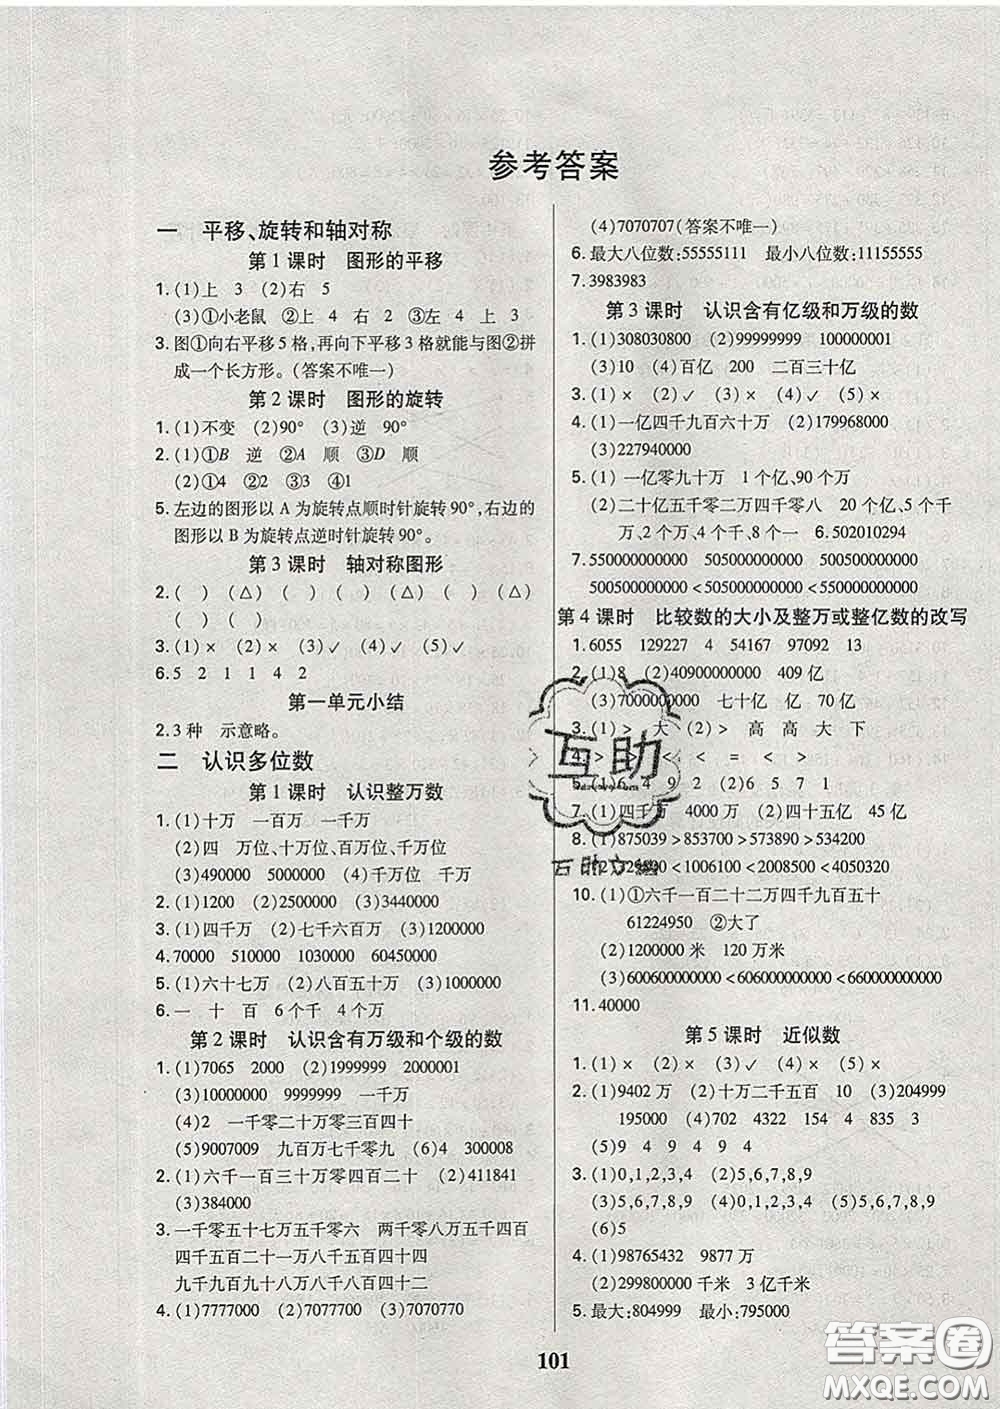 参考答案
一 平移、旋转和轴对称
第 1 课时 图形的平移
1.(1)上 3 (2)右 5
(3)①小老鼠 ②上 4 右 2 ③右 4 上 3
3.图①向右平移5格,再向下平移3格就能与图②拼
成一个长方形。(答案不唯一)
第 2 课时 图形的旋转
1.(1)不变 (2)90° (3)逆 90°
2.(1)①B 逆 ②A 顺 ③D 顺
(2)①4 ②2 ③3 ④1
5.左边的图形以 A 为旋转点顺时针旋转90°,右边的图
形以 B 为旋转点逆时针旋转90°。
第 3 课时 轴对称图形
2.( ) (△) ( ) ( ) (△) (△) (△)
( ) ( )
3.(1)× (2)× (3)✓ (4)✓ (5)✓
6.5 2 1 1 4 2
第一单元小结
2.3种 示意略。
二 认识多位数
第 1 课时 认识整万数
1.(1)十万 一百万 一千万
(2)四 万位、十万位、百万位、千万位
(3)490000 (4)千万位 千万
2.(1)1200 (2)2500 (3)3440000
3.(1)四千万 (2)七千六百万 (3)1200000
4.70000 510000 1030000 60450000
5.(1)六十七万 (2)八百五十万 (3)1020000
6.一 十 百 6个千 4个万
第 2 课时 认识含有万级和个级的数
1.(1)7065 2000 (2)1999999 2000001
(3)10000000 9999999 一千万
(4)2 一千零二十万零三百四十
(5)9007009 九百万七千零九 (6)4 300008
2.(1)六千一百三十万零四百二十 (2)411841
(3)384000
3.一千零五十七万五千零六 两千零八万五千四百
四千五百二十一万八千五百四十四
九千九百九十八万八千八百四十二
4.(1)7777000 (2)7077700 (3)7077070
(4)7070707(答案不唯一)
6.最大八位数:55555111 最小八位数:11155555
7.3983983
第 3 课时 认识含有亿级和万级的数
1.(1)308030800 (2)99999999 100000001
(3)10 (4)百亿 200 二百三十亿
3.(1)× (2)✓ (3)× (4)✓ (5)×
4.(1)一亿四千九百六十万 (2)179968000
(3)227940000
5.(1)一亿零九十万 1个亿、90个万
(2)二十亿五千零二万四千零八 20个亿、5个千
万、2个万、4个千、8个一 6.502010294
7.550000000000 505000000000 500500000000
500500000000<505000000000<550000000000
第 4 课时 比较数的大小及整万或整亿数的改写
1.6055 129227 4 54167 97092 13
2.(1)8 (2)40900000000 409亿
(3)7000000000 七十亿 亿 70亿
3.(1)> 大 (2)> 高 高 大 下
4.> > < < = < >
6.(1)6 4 9 2 (2)6 5 7 1
7.(1)四千万 4000万 (2)四十五亿 45亿
8.(1)875039>853700>573890>534200
(2)528000<1006100<2008500<4050320
10.(1)①六千一百二十二万四千九百五十
61224950 ②大了
(2)1200000米 120万米
(3)600600000000<606000000000<660000000000
11.40000
第 5 课时 近似数
1.(1)× (2)× (3)✓ (4)× (5)×
2.(1)9402万 (2)十万二千五百 10 (3)204999
195000 (4)702 4322 154 4 835 3
(5)9 4 9 4 9 4
3.(1)0,1,2,3,4 (2)5,6,7,8,9
(3)5,6,7,8,9 (4)0,1,2,3,4 (5)5,6,7,8,9
(6)5
4.(1)98765432 9877万
(2)299800000千米 3亿千米
5.最大:804999 最小:795000
101
互助
答案圈
MXQE.COM